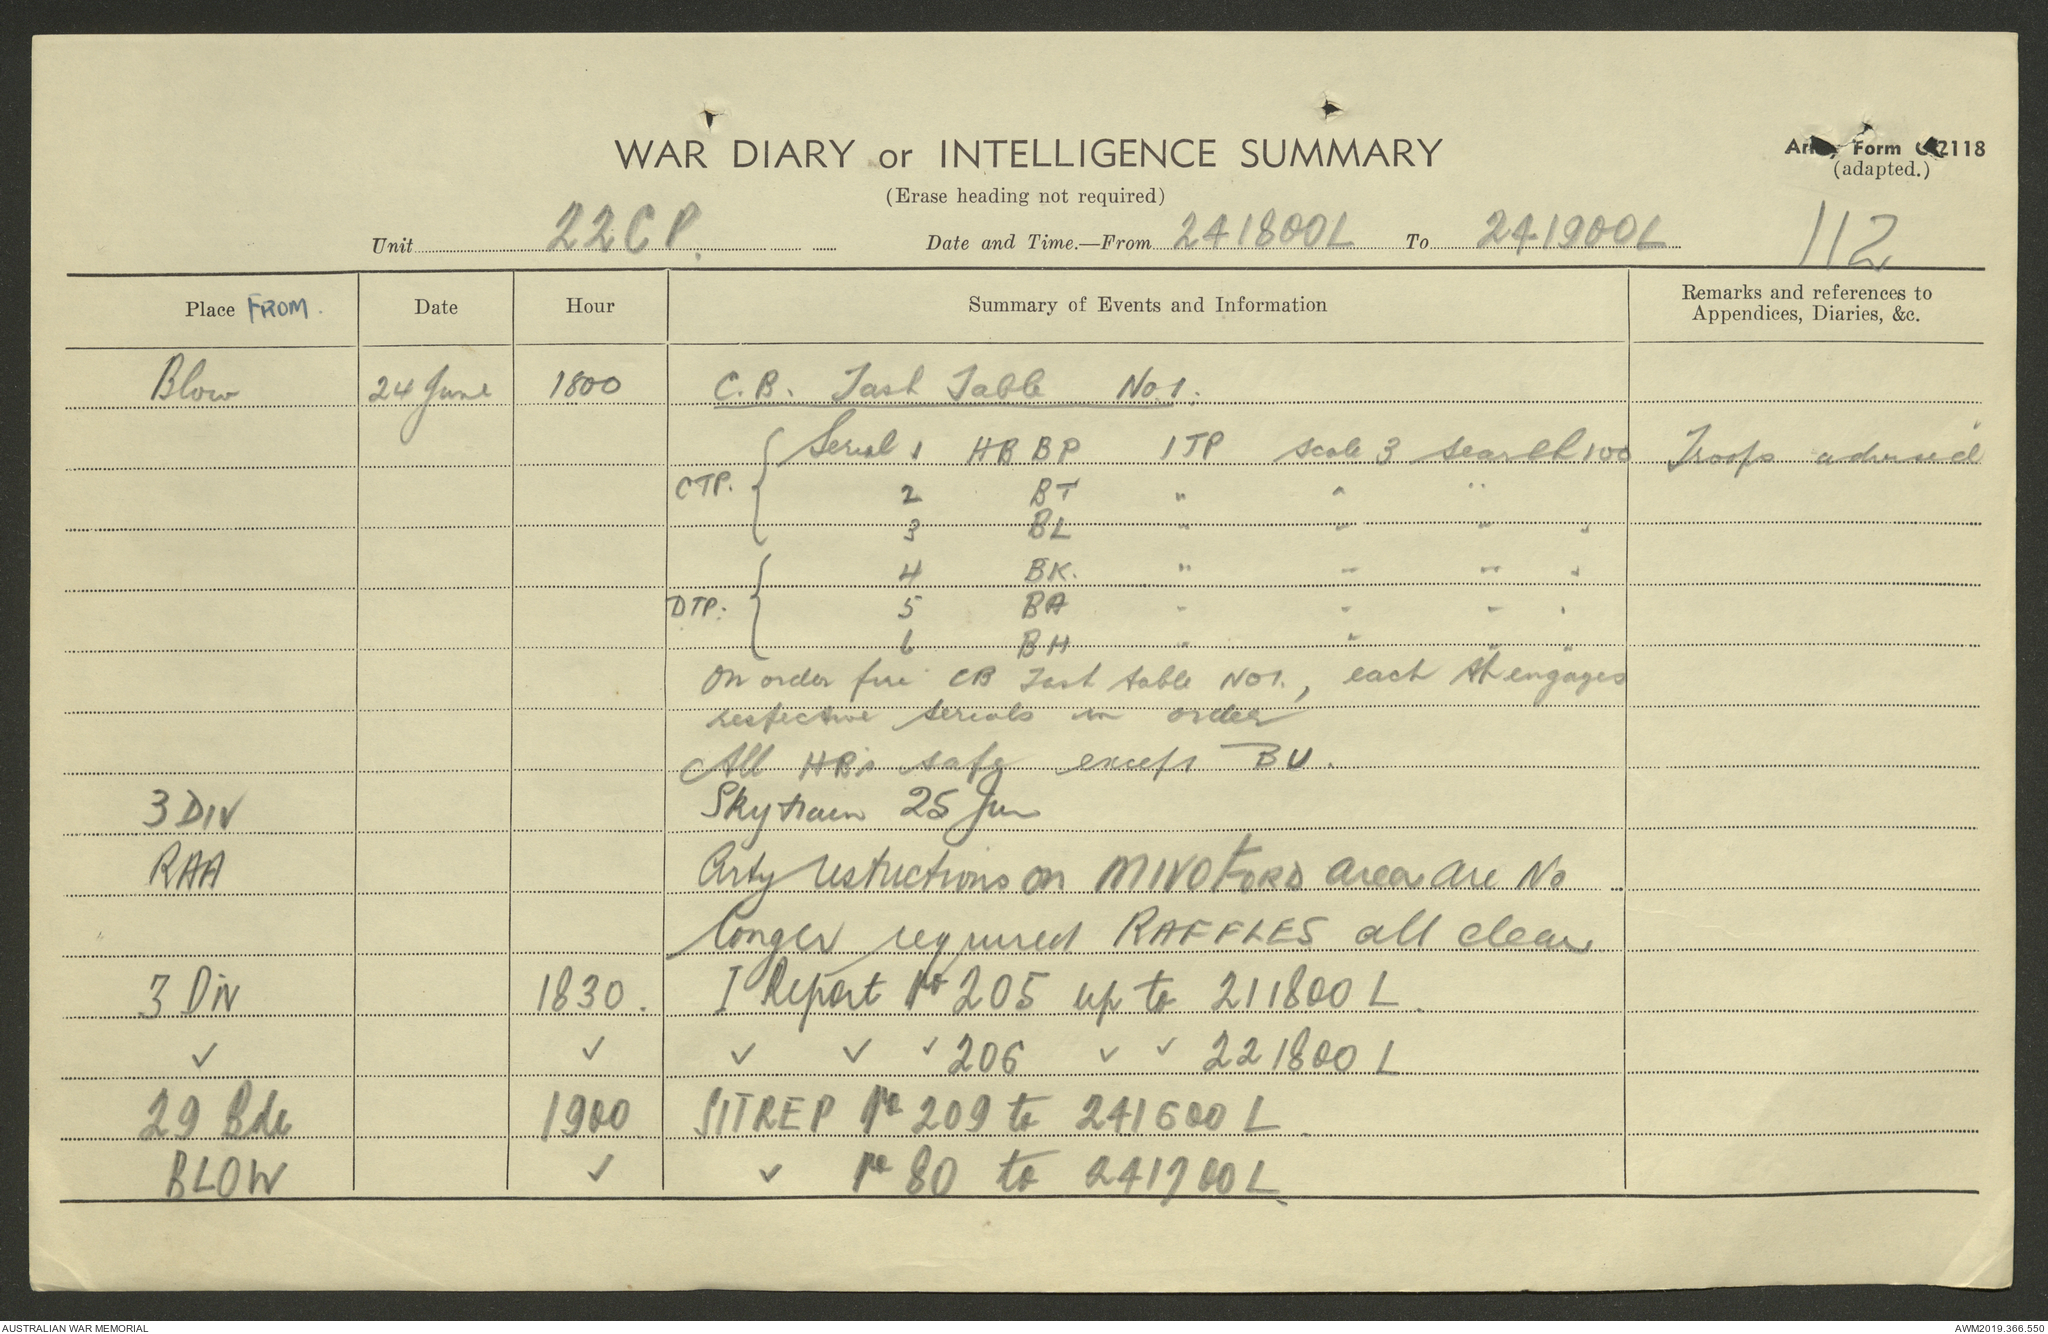 WAR DIARY or INTELLIGENCE SUMMARY
(Erase heading not required)
Army Form C.2118
(adapted.)
Unit 22 C P. Date and Time.—From 241800L To 241900L
112
Place FROM. Date Hour Summary of Events and Information Remarks and references to Appendices, Diaries, &c.
Blow 24 June 1800 C.B. Task Table No 1.
CTP. Serial 1 HB BP 1 TP scale 3 search 100 Troops advised
2 BT " " "
3 BL " " " "
DTP. 4 BK. " " " "
5 BA " " " "
6 BH " " " "
On order fire CB Task table No 1., each engages
respective serials in order
All HB's safe except BU.
3 DIV Skytrain 25 Jun
RAA Arty restrictions on MIVO FORD area are No
longer required RAFFLES all clear
3 Div 1830. I Report No 205 up to 211800 L.
✓ ✓ ✓ ✓ ✓ 206 ✓ ✓ 221800 L
29 Bde 1900 SITREP No 209 to 241600 L.
BLOW ✓ ✓ No 80 to 241700 L
AUSTRALIAN WAR MEMORIAL
AWM2019.366.550